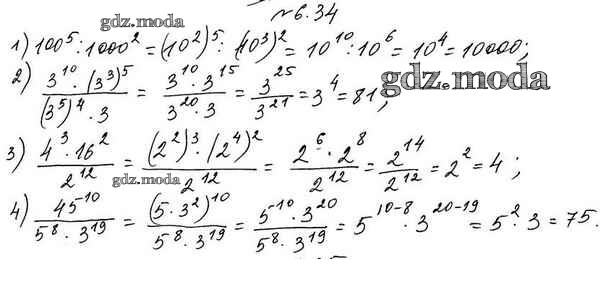 №6.34
gdz.moda
1) 100⁵ : 1000² = (10²)⁵ : (10³)² = 10¹⁰ : 10⁶ = 10⁴ = 10000;
2) (3¹⁰ · (3³)⁵) / ((3⁵)⁴ · 3) = (3¹⁰ · 3¹⁵) / (3²⁰ · 3) = 3²⁵ / 3²¹ = 3⁴ = 81;
gdz.moda
3) (4³ · 16²) / 2¹² = ((2²)³ · (2⁴)²) / 2¹² = (2⁶ · 2⁸) / 2¹² = 2¹⁴ / 2¹² = 2² = 4 ;
gdz.moda
4) 45⁻¹⁰ / (5⁸ · 3¹⁹) = (5 · 3²)¹⁰ / (5⁸ · 3¹⁹) = (5⁻¹⁰ · 3²⁰) / (5⁸ · 3¹⁹) = 5¹⁰⁻⁸ · 3²⁰⁻¹⁹ = 5² · 3 = 75.